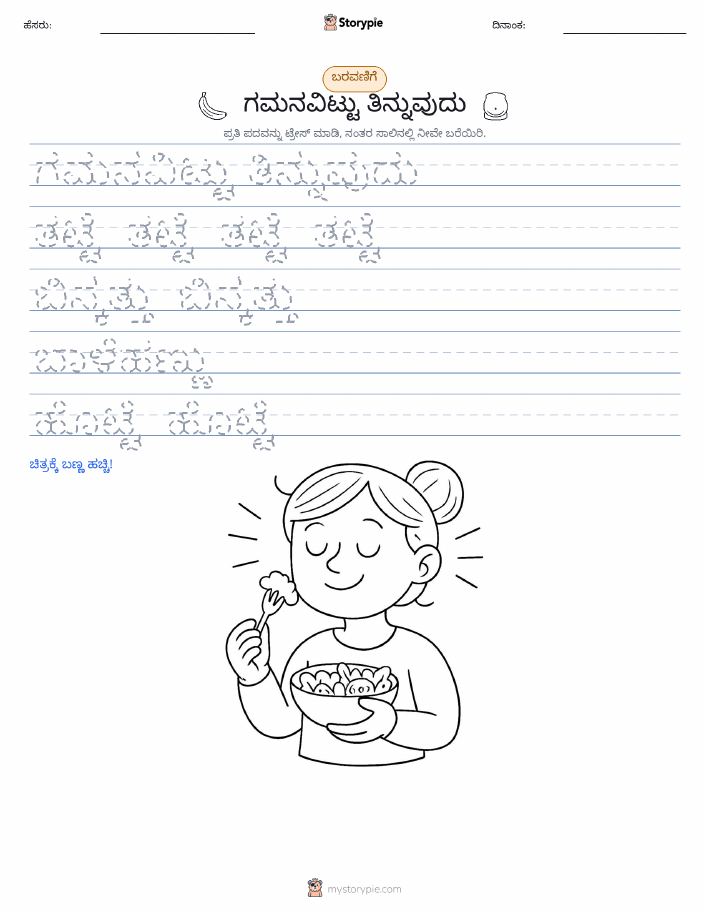 ಹೆಸರು:
Storypie
ದಿನಾಂಕ:
ಬರವಣಿಗೆ
ಗಮನವಿಟ್ಟು ತಿನ್ನುವುದು
ಪ್ರತಿ ಪದವನ್ನು ಟ್ರೇಸ್ ಮಾಡಿ, ನಂತರ ಸಾಲಿನಲ್ಲಿ ನೀವೇ ಬರೆಯಿರಿ.
ಗಮನವಿಟ್ಟು ತಿನ್ನುವುದು
ತಟ್ಟೆ ತಟ್ಟೆ ತಟ್ಟೆ ತಟ್ಟೆ
ಬಿಸ್ಕತ್ತು ಬಿಸ್ಕತ್ತು
ಬಾಳೆಹಣ್ಣು
ಹೊಟ್ಟೆ ಹೊಟ್ಟೆ
ಚಿತ್ರಕ್ಕೆ ಬಣ್ಣ ಹಚ್ಚಿ!
mystorypie.com